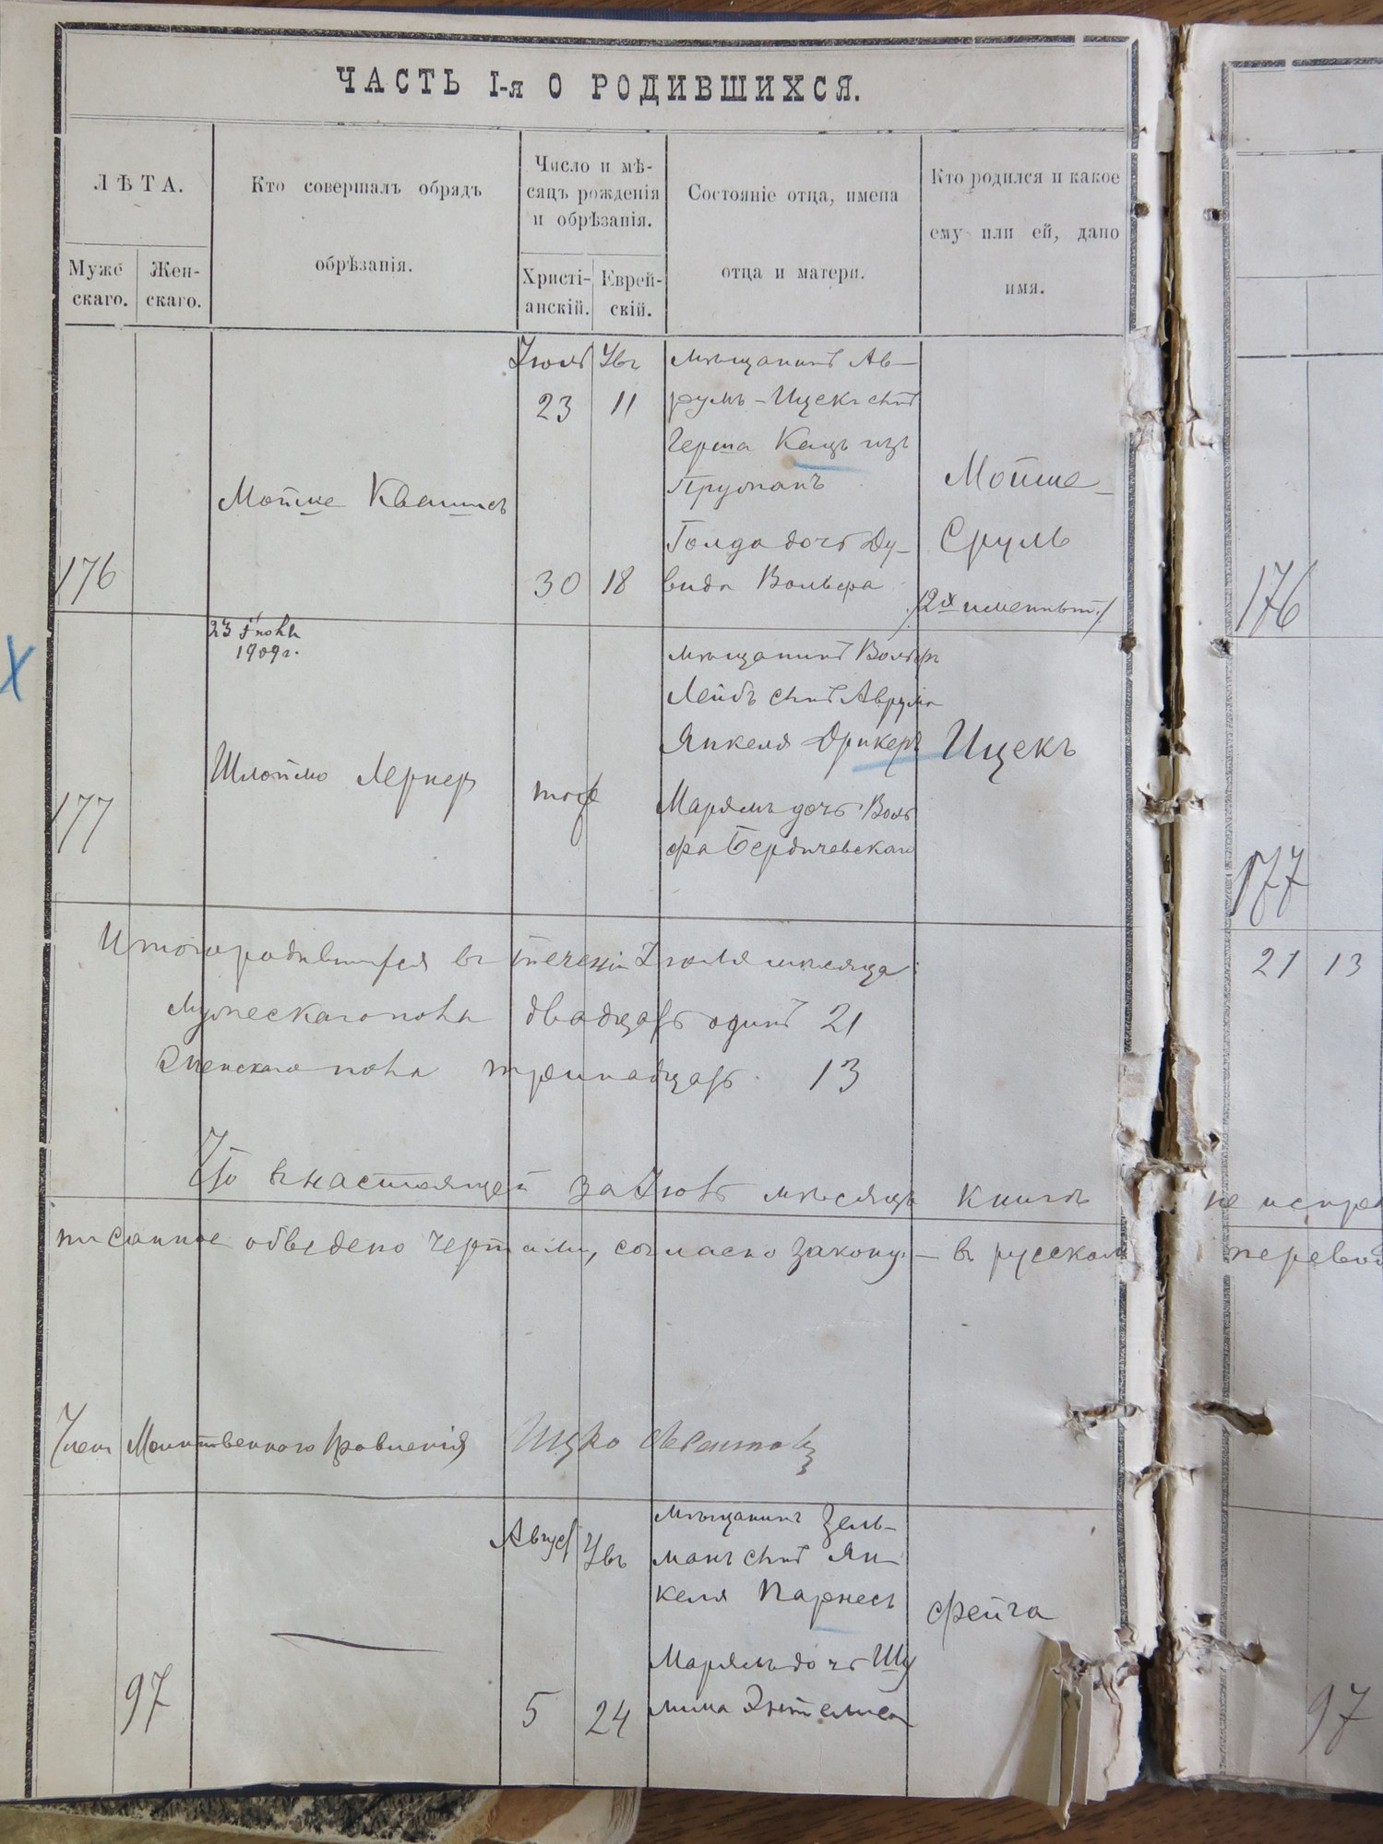 ЧАСТЬ I-я О РОДИВШИХСЯ.
ЛѢТА.
Мужескаго.
Женскаго.
Кто совершалъ обрядъ
обрѣзанія.
Число и мѣ-
сяцъ рожденія
и обрѣзанія.
Христі-
анскій.
Еврей-
скій.
Состояніе отца, имена
отца и матери.
Кто родился и какое
ему или ей, дано
имя.
176
Мойше
Июль
23
30
11
18
мѣщанинъ Ав-
румъ-Ицекъ сынъ
Герша Кацъ изъ
Голда дочь Ду-
вида Вольфа
Мойше-
Сруль
/2х именный/
176
177
1909 г.
Шлойме Лернер
тоже
мѣщанинъ Вольфъ
Лейбъ сынъ Аврума
Янкеля Дрикеръ
Марямъ дочь Воль
фа Бердичевскаго
Ицекъ
177
Итого родившихся въ теченіи Іюля мѣсяца:
Мужескаго пола двадцать одинъ 21
Женскаго пола тринадцать 13
21 13
Что въ настоящей за Іюль мѣсяцъ книгѣ не
писанное обведено чертами, согласно закону - въ русскомъ перевод
Членъ Молитвеннаго Правленія
97
Август
5
24
мѣщанинъ Зель-
манъ сынъ Ян-
келя Парнесъ
Марямъ дочь Шу
лима
Фейга
97